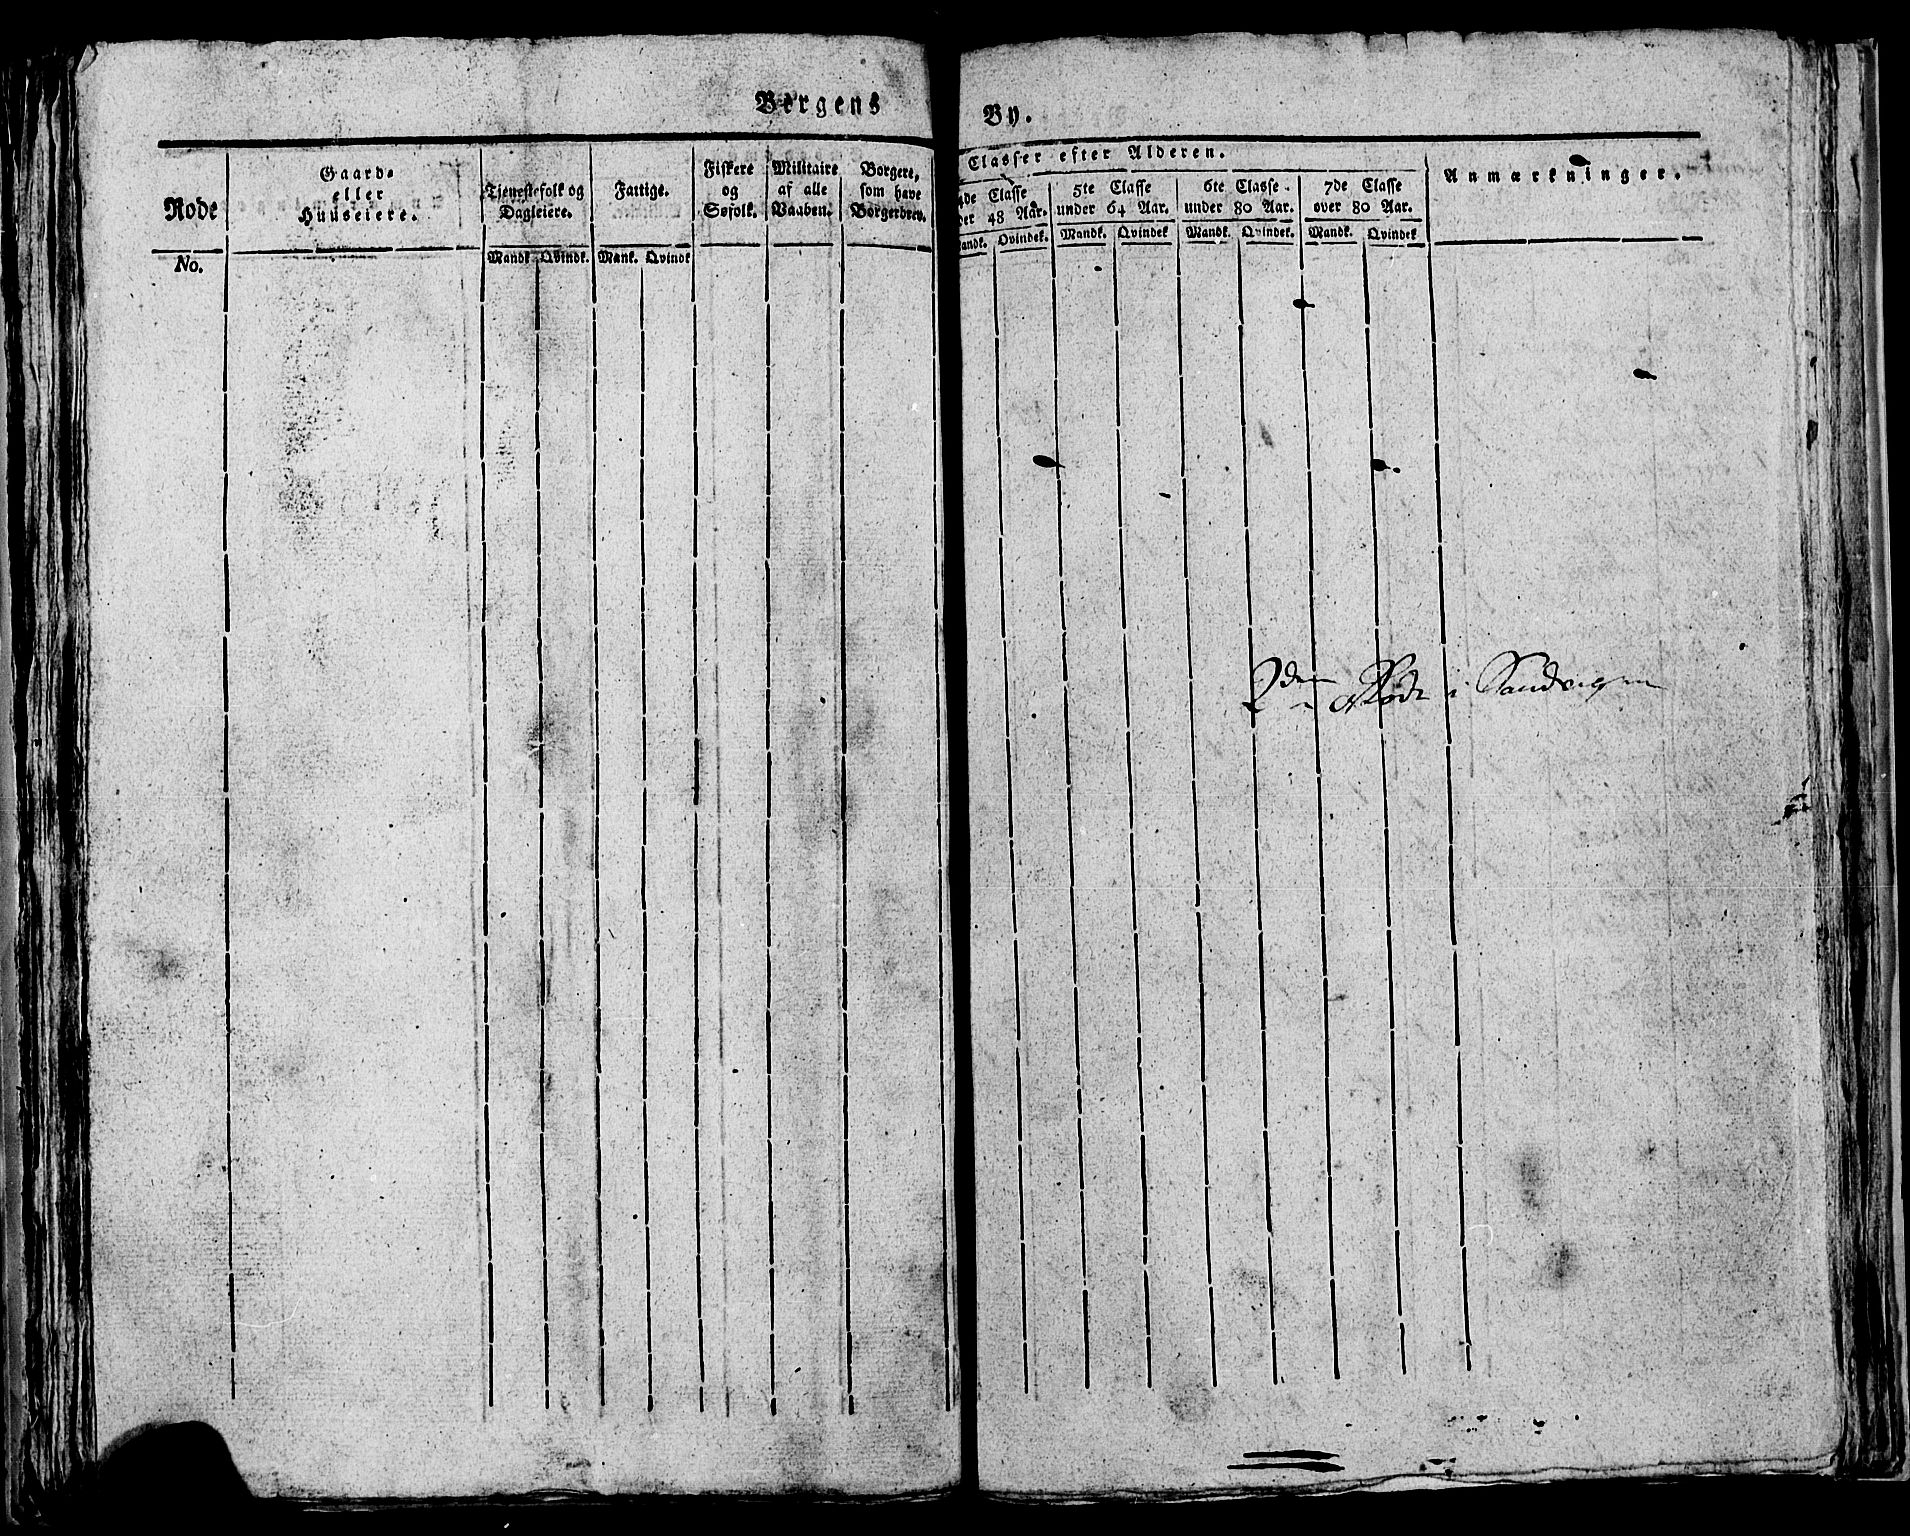 Bergens By.
Rode
No.
Gaard-
eller
Huuseiere.
Tjenestefolk og
Dagleiere.
Mandk. Qvindk.
Fattige.
Mank. Qvindk
Fiskere
og
Søfolk.
Militaire
af alle
Vaaben.
Borgere,
som have
Borgerbrev.
Classer efter Alderen.
4de Classe
under 48 Aar.
Mandk. Qvindek.
5te Classe
under 64 Aar.
Mandk. Qvindek
6te Classe
under 80 Aar.
Mandk. Qvindek.
7de Classe
over 80 Aar.
Mandk. Qvindek
Anmærkninger.
2den Rode i Sandvigen